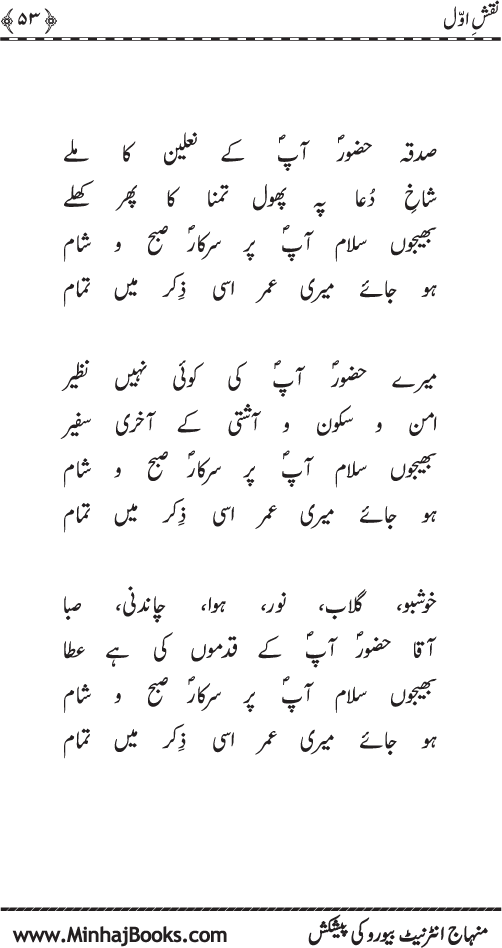 نقشِ اوّل ﴿۵۳﴾
صدقہ حضورؐ آپؐ کے نعلین کا ملے
شاخِ دُعا پہ پھول تمنا کا پھر کھلے
بھیجوں سلام آپؐ پر سرکارؐ صبح و شام
ہو جائے میری عمر اسی ذِکر میں تمام
میرے حضورؐ آپؐ کی کوئی نہیں نظیر
امن و سکون و آشتی کے آخری سفیر
بھیجوں سلام آپؐ پر سرکارؐ صبح و شام
ہو جائے میری عمر اسی ذِکر میں تمام
خوشبو، گلاب، نور، ہوا، چاندنی، صبا
آقا حضورؐ آپؐ کے قدموں کی ہے عطا
بھیجوں سلام آپؐ پر سرکارؐ صبح و شام
ہو جائے میری عمر اسی ذِکر میں تمام
منہاج انٹرنیٹ بیورو کی پیشکش www.MinhajBooks.com